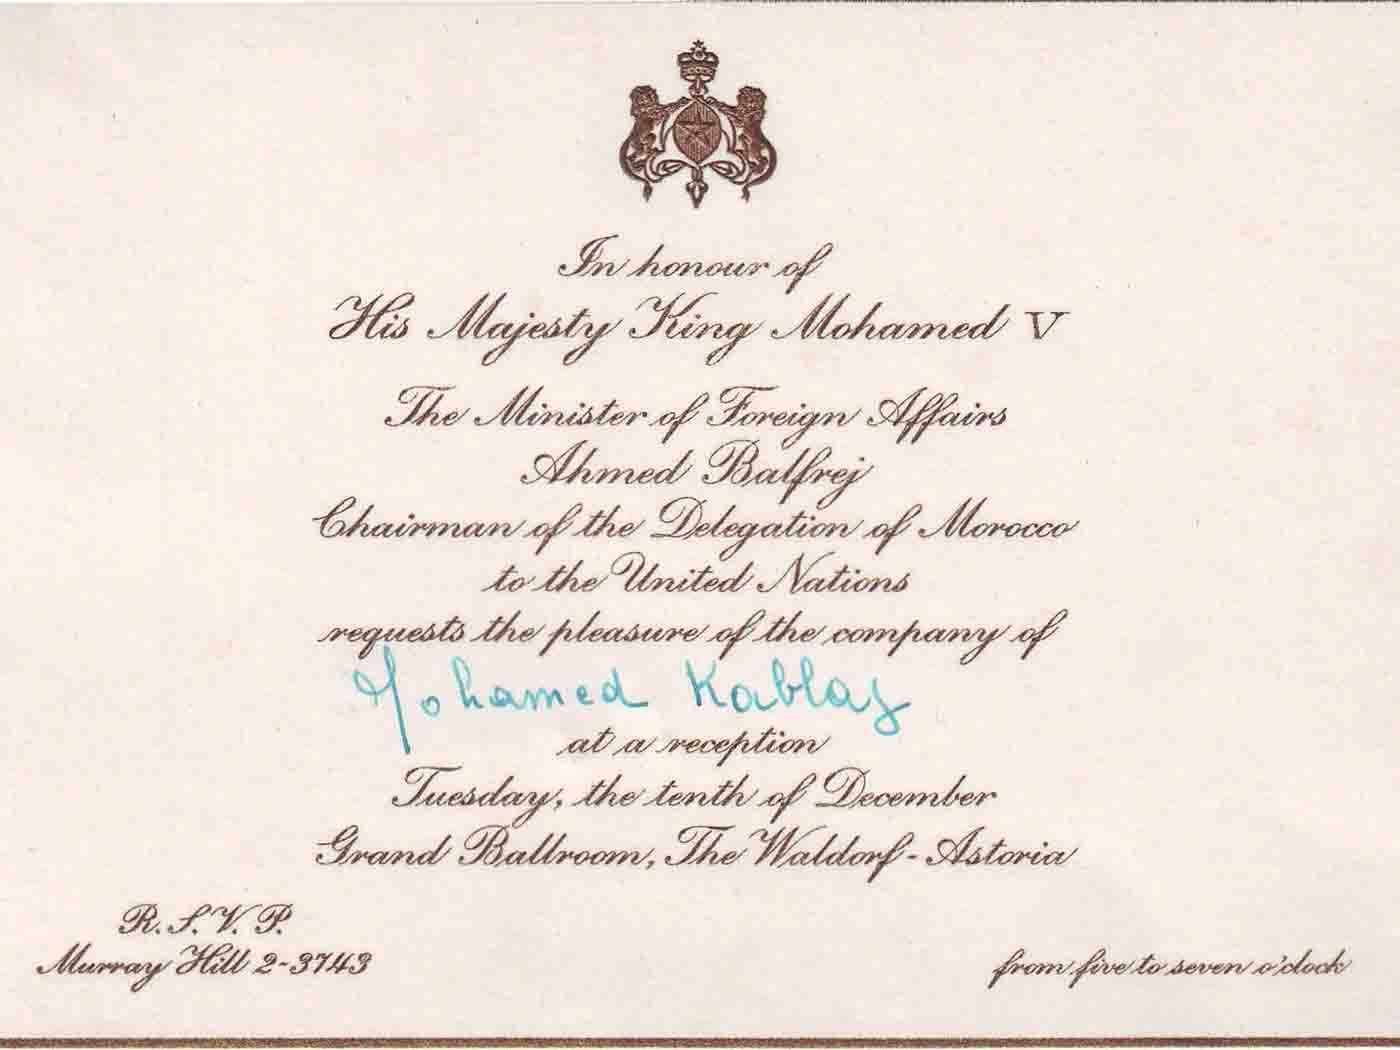 In honour of
His Majesty King Mohamed V
The Minister of Foreign Affairs
Ahmed Balfrej
Chairman of the Delegation of Morocco
to the United Nations
requests the pleasure of the company of
Mohamed Kablaz
at a reception
Tuesday, the tenth of December
Grand Ballroom, The Waldorf-Astoria
R.S.V.P.
Murray Hill 2-3743
from five to seven o'clock